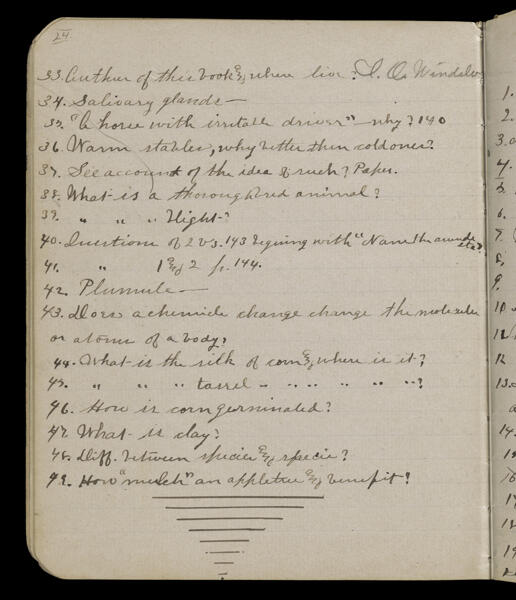 24
33. Author of this book & where live? I. O. Winslow
34. Salivary glands —
35. "A horse with irritable driver" — why? 140
36. Warm stables, why better than cold ones?
37. See account of the idea of such? Paper.
38. What is a thoroughbred animal?
39. " " " Blight?
40. Questions of 2 vs. 143 begining with "Name the
41. " 1 & 2 p. 144.
42. Plumule —
43. Does a chemicle change change the molecules
or atoms of a body?
44. What is the silk of corn & where is it?
45. " " " tassel " " " " " " ?
46. How is corn germinated?
47. What is clay?
48. Diff. between species & specie?
49. How "mulch" an appletree & benefit?
1.
2.
3.
4.
5.
6.
7.
8.
9.
10
11
12
13.
14.
15
16
17
18
19